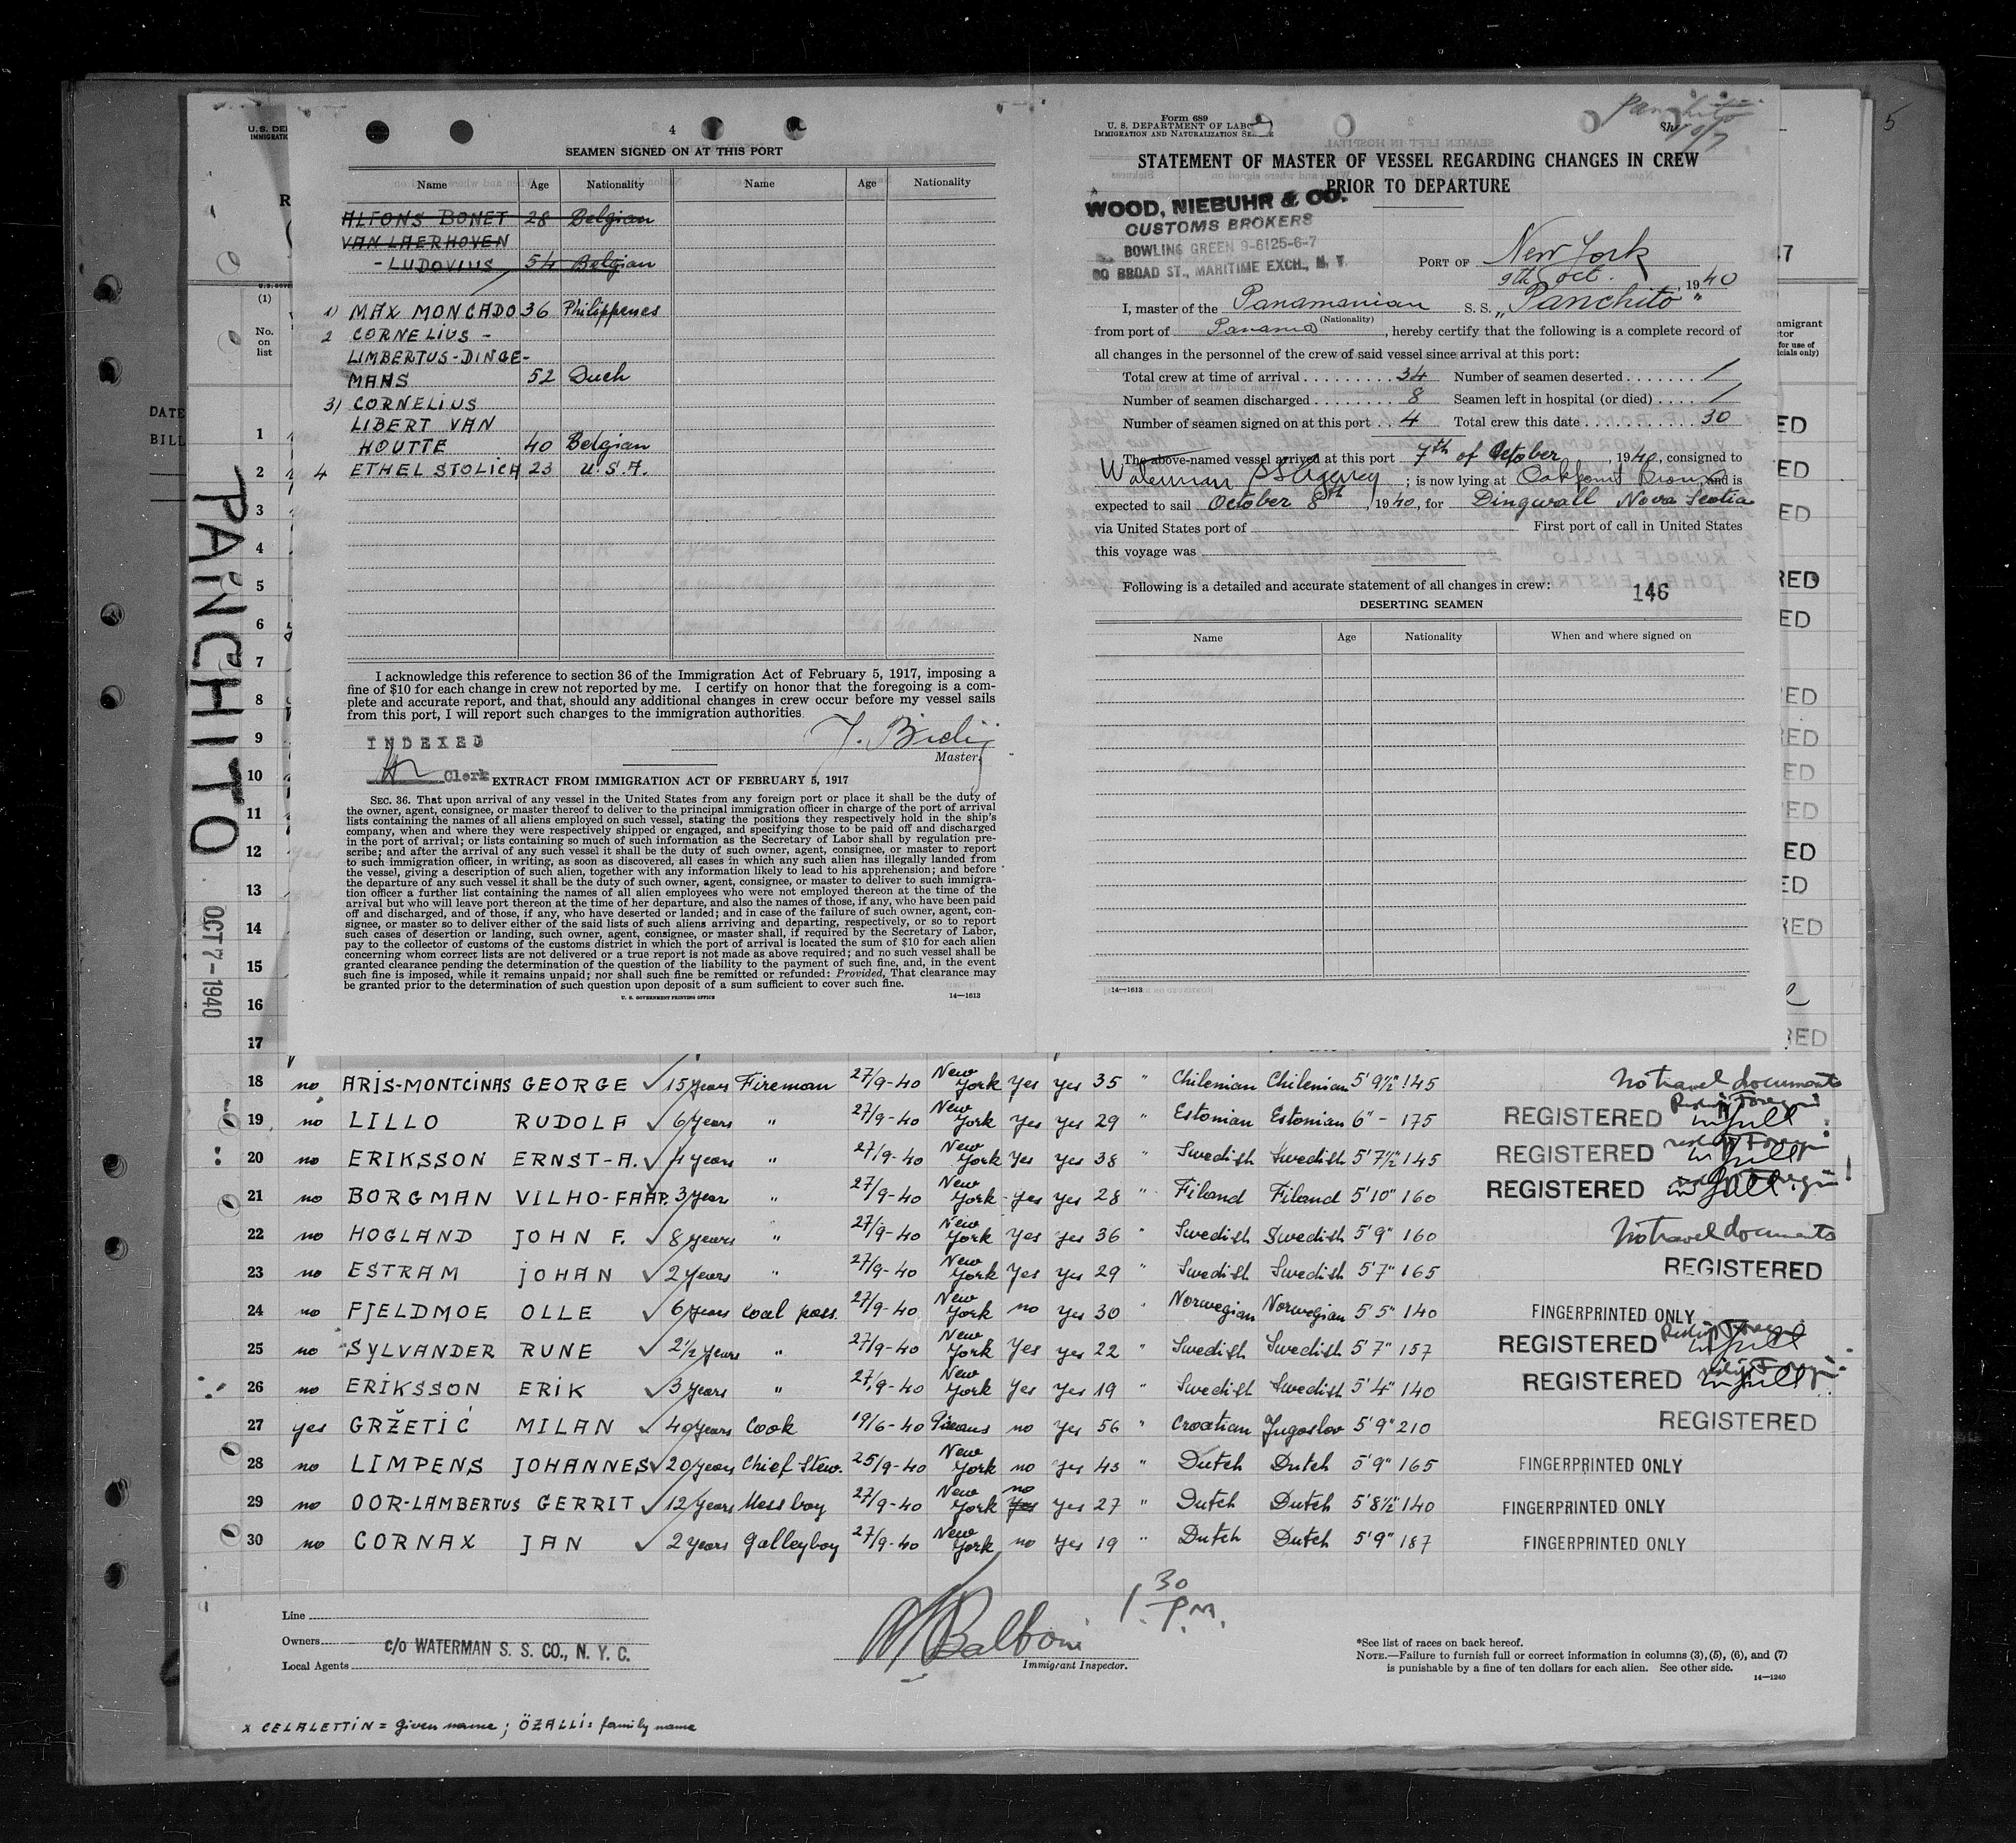 5
U. S. DE
IMMIGRATI
4
SEAMEN SIGNED ON AT THIS PORT
Name Age Nationality Name Age Nationality
ALFONS BONET 28 Belgian
VAN LAERHOVEN
- LUDOVIUS 54 Belgian
1) MAX MONCADO 36 Philippenes
2 CORNELIUS -
LIMBERTUS-DINGE-
MANS 52 Duch
3) CORNELIUS
LIBERT VAN
HOUTTE 40 Belgian
4 ETHEL STOLICH 23 U.S.A.
I acknowledge this reference to section 36 of the Immigration Act of February 5, 1917, imposing a
fine of $10 for each change in crew not reported by me. I certify on honor that the foregoing is a com-
plete and accurate report, and that, should any additional changes in crew occur before my vessel sails
from this port, I will report such changes to the immigration authorities
Master.
INDEXED
Clerk
EXTRACT FROM IMMIGRATION ACT OF FEBRUARY 5, 1917
SEC. 36. That upon arrival of any vessel in the United States from any foreign port or place it shall be the duty of
the owner, agent, consignee, or master thereof to deliver to the principal immigration officer in charge of the port of arrival
lists containing the names of all aliens employed on such vessel, stating the positions they respectively hold in the ship's
company, when and where they were respectively shipped or engaged, and specifying those to be paid off and discharged
in the port of arrival; or lists containing so much of such information as the Secretary of Labor shall by regulation pre-
scribe; and after the arrival of any such vessel it shall be the duty of such owner, agent, consignee, or master to report
to such immigration officer, in writing, as soon as discovered, all cases in which any such alien has illegally landed from
the vessel, giving a description of such alien, together with any information likely to lead to his apprehension; and before
the departure of any such vessel it shall be the duty of such owner, agent, consignee, or master to deliver to such immigra-
tion officer a further list containing the names of all alien employees who were not employed thereon at the time of the
arrival but who will leave port thereon at the time of her departure, and also the names of those, if any, who have been paid
off and discharged, and of those, if any, who have deserted or landed; and in case of the failure of such owner, agent, con-
signee, or master so to deliver either of the said lists of such aliens arriving and departing, respectively, or so to report
such cases of desertion or landing, such owner, agent, consignee, or master shall, if required by the Secretary of Labor,
pay to the collector of customs of the customs district in which the port of arrival is located the sum of $10 for each alien
concerning whom correct lists are not delivered or a true report is not made as above required; and no such vessel shall be
granted clearance pending the determination of the question of the liability to the payment of such fine, and, in the event
such fine is imposed, while it remains unpaid; nor shall such fine be remitted or refunded: Provided, That clearance may
be granted prior to the determination of such question upon deposit of a sum sufficient to cover such fine.
U. S. GOVERNMENT PRINTING OFFICE 14—1613
Form 689
U. S. DEPARTMENT OF LABOR
IMMIGRATION AND NATURALIZATION SERVICE
Panchito
10/7
STATEMENT OF MASTER OF VESSEL REGARDING CHANGES IN CREW
PRIOR TO DEPARTURE
WOOD, NIEBUHR & CO.
CUSTOMS BROKERS
BOWLING GREEN 9-6125-6-7
80 BROAD ST., MARITIME EXCH., N. Y.
PORT OF New York
9th Oct. , 1940
I, master of the Panamanian S. S. „Panchito"
(Nationality)
from port of Panama , hereby certify that the following is a complete record of
all changes in the personnel of the crew of said vessel since arrival at this port:
Total crew at time of arrival 34 Number of seamen deserted 1
Number of seamen discharged 8 Seamen left in hospital (or died) 1
Number of seamen signed on at this port 4 Total crew this date 30
The above-named vessel arrived at this port 7th of October , 1940, consigned to
Waterman SS Agency ; is now lying at Oakpoint Bronx, and is
expected to sail October 8th , 1940, for Dingwall Nova Scotia
via United States port of First port of call in United States
this voyage was
Following is a detailed and accurate statement of all changes in crew:
146
DESERTING SEAMEN
Name Age Nationality When and where signed on
14—1613
PANCHITO
OCT 7-1940
DATE
BILL
(1)
No.
on
list
1
2
3
4
5
6
7
8
9
10
11
12
13
14
15
16
17
18 no ARIS-MONTCINAS GEORGE ✓ 15 years Fireman 27/9-40 New York yes yes 35 " Chilenian Chilenian 5' 9½" 145 No travel documents
19 no LILLO RUDOLF ✓ 6 years " 27/9-40 New York yes yes 29 " Estonian Estonian 6" - 175 REGISTERED in full
20 no ERIKSSON ERNST-A. ✓ 4 years " 27/9-40 New York yes yes 38 " Swedish Swedish 5' 7½" 145 REGISTERED in full
21 no BORGMAN VILHO-FAAP. 3 years " 27/9-40 New York yes yes 28 " Finland Finland 5' 10" 160 REGISTERED in full
22 no HOGLAND JOHN F. ✓ 8 years " 27/9-40 New York yes yes 36 " Swedish Swedish 5' 9" 160 No travel documents
23 no ESTRAM JOHAN ✓ 2 years " 27/9-40 New York yes yes 29 " Swedish Swedish 5' 7" 165 REGISTERED
24 no FJELDMOE OLLE ✓ 6 years Coal pass. 27/9-40 New York no yes 30 " Norwegian Norwegian 5' 5" 140 FINGERPRINTED ONLY
25 no SYLVANDER RUNE ✓ 2½ years " 27/9-40 New York yes yes 22 " Swedish Swedish 5' 7" 157 REGISTERED in full
26 no ERIKSSON ERIK ✓ 3 years " 27/9-40 New York yes yes 19 " Swedish Swedish 5' 4" 140 REGISTERED in full
27 yes GRŽETIĆ MILAN ✓ 40 years Cook 19/6-40 no yes 56 " Croatian Jugoslav 5' 9" 210 REGISTERED
28 no LIMPENS JOHANNES ✓ 20 years Chief Stew. 25/9-40 New York no yes 43 " Dutch Dutch 5' 9" 165 FINGERPRINTED ONLY
29 no OOR-LAMBERTUS GERRIT ✓ 12 years Mess boy 27/9-40 New York no yes yes 27 " Dutch Dutch 5' 8½" 140 FINGERPRINTED ONLY
30 no CORNAX JAN ✓ 2 years Galleyboy 27/9-40 New York no yes 19 " Dutch Dutch 5' 9" 187 FINGERPRINTED ONLY
Line
Owners
c/o WATERMAN S. S. CO., N. Y. C.
Local Agents
Immigrant Inspector.
1 30 P.M.
*See list of races on back hereof.
NOTE.—Failure to furnish full or correct information in columns (3), (5), (6), and (7)
is punishable by a fine of ten dollars for each alien. See other side.
14—1240
x CELALETTIN = given name; ÖZALLI: family name